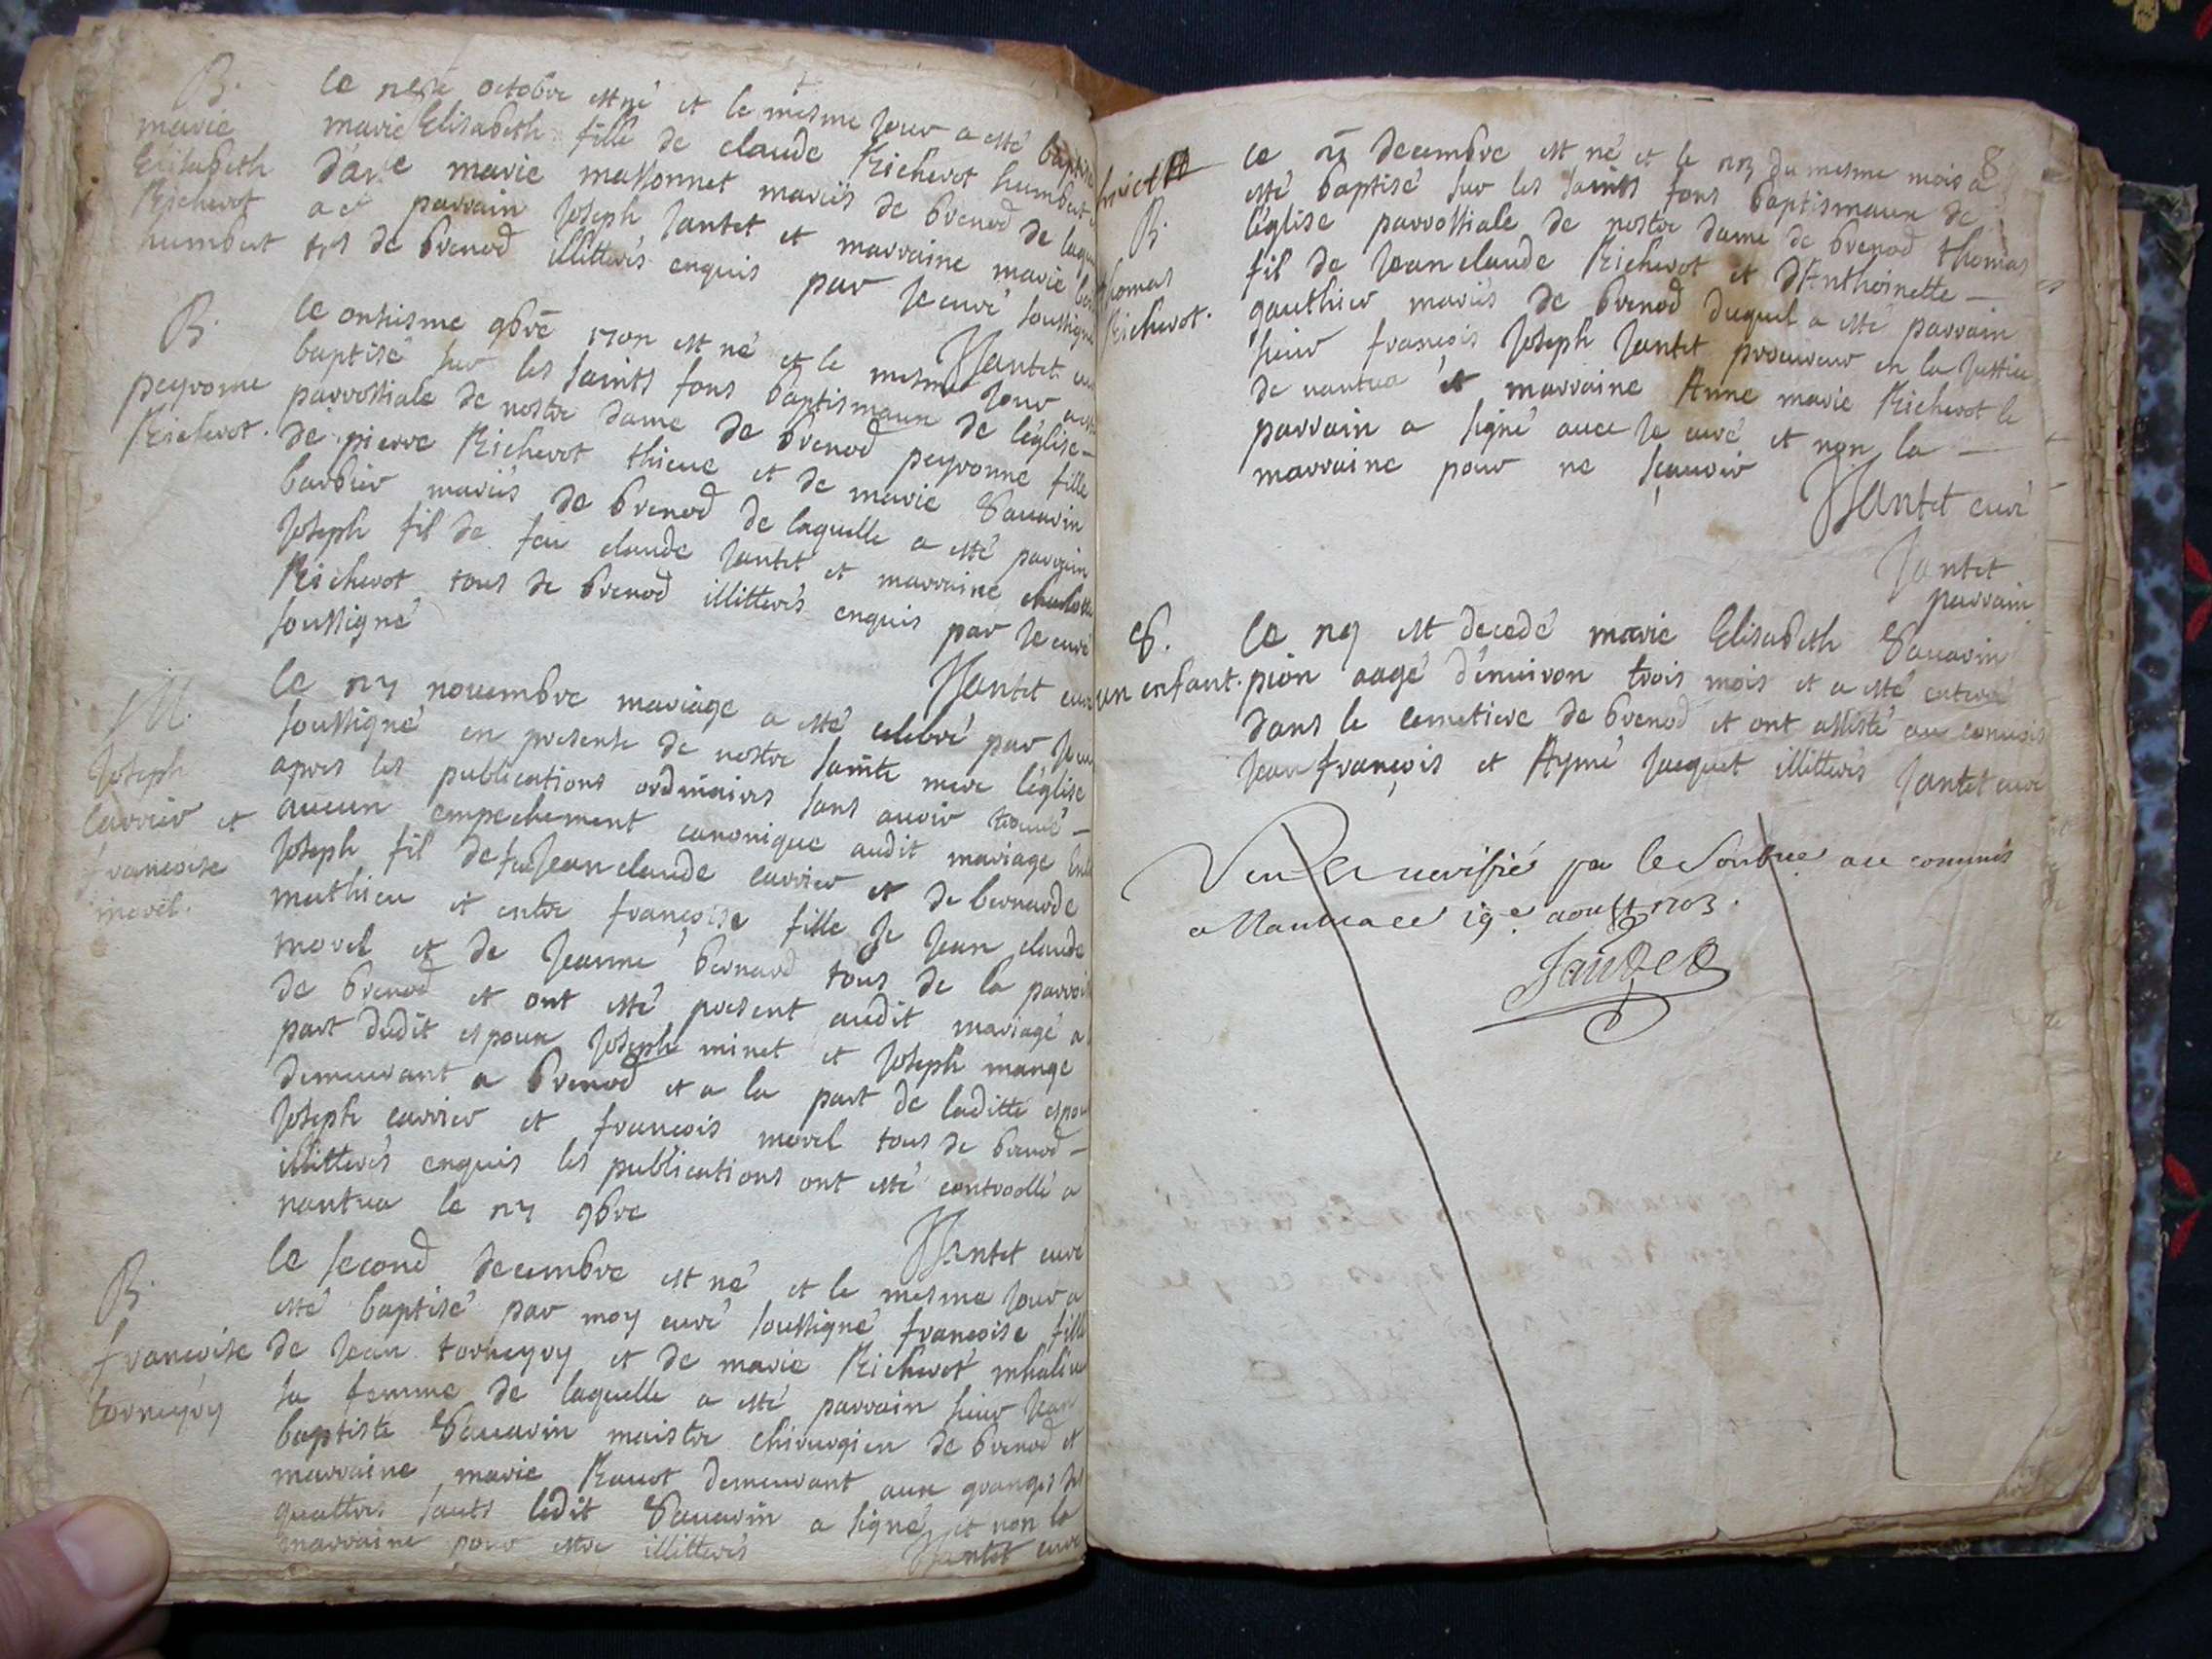 B.
marie
Elisabeth
Richerot
humbert
le octobre est né et le mesme jour a esté baptisé
marie Elisabeth fille de claude Richerot humbert
d'anne marie massonnet mariés de brenod de laque
parrain Joseph Jantet et marraine marie
de brenod illitterés enquis par je curé soussigné
Jantet curé
B.
peyronne
Richerot.
le onsisme 9bre est né et le mesme jour a esté
baptisé sur les saints fons baptismaux de l'église
parrossiale de nostre dame de brenod peyronne fille
de pierre Richerot thieue et de marie Sauarin
barbier mariés de brenod de laquelle a esté parrain
Joseph fil de feu claude Jantet et marraine
Richerot tous de brenod illitterés enquis par je curé
soussigné
Jantet curé
M.
Joseph
carrier et
francoise
morel.
le novembre mariage a esté celebré par je curé
soussigné en presente de nostre sainte mere l'église
apres les publications ordinaires sans auoir trouué
aucun empechement canonique audit mariage entre
Joseph fil de feu Jean claude carrier et de bernarde
mathieu et entre françoise fille de Jean claude
morel et de Jeanne bernard tous de la parroi
de brenod et ont esté present audit mariage a
part dudit espoux Joseph minet et Joseph mange
demeurant a brenod et a la part de laditte espou
Joseph carrier et françois morel tous de brenod
illitterés enquis les publications ont esté controollé a
nantua le 9bre
Jantet curé
B.
françoise
torneyry
le second decembre est né et le mesme jour a
esté baptisé par moy curé soussigné françoise fille
de Jean torneyry et de marie Richerot
sa femme de laquelle a esté parrain sieur Jean
baptiste Sauarin maistre chirurgien de brenod et
marraine marie Rauot demeurant aux granges des
quattres sauts ledit Sauarin a signé et non la
marraine pour estre illitterés
Jantet curé
8
B.
thomas
Richerot.
le decembre est né et le du mesme mois a
esté baptisé sur les saints fons baptismaux de
l'église parrossiale de nostre dame de brenod thomas
fil de Jean claude Richerot et d'Anthoinette
gauthier mariés de brenod duquel a esté parrain
sieur françois Joseph Jantet procureur en la justice
de nantua et marraine Anne marie Richerot le
parrain a signé auec je curé et non la
marraine pour ne sçauoir
Jantet curé
Jantet
parrain
S.
un enfant.
le est decedé marie Elisabeth Sauarin
pion aagé d'enuiron trois mois et a esté enterré
dans le cemetiere de brenod et ont assisté au conuois
Jean françois et Aymé Jacquet illitterés Jantet curé
Veu et veriffié par le commis
a Nantua ce 19e aoust 1703.